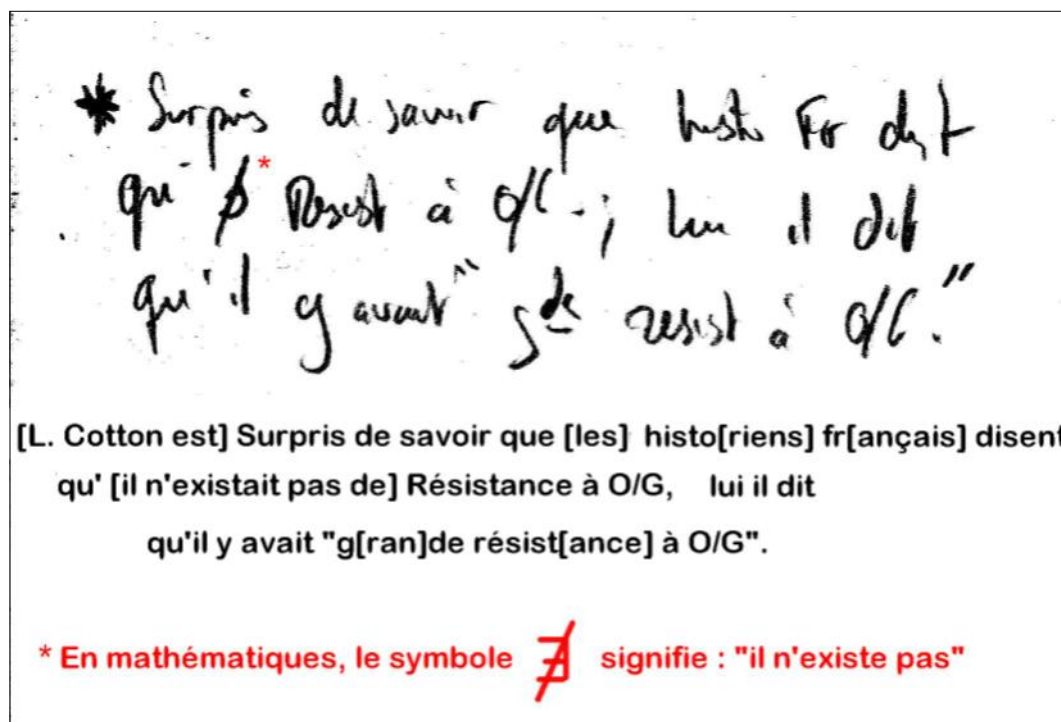 * Surpris de savoir que histo Fr dst
qu' ∄* Resist à O/G.; lui il dit
qu'il y avait "gde resist à O/G."
[L. Cotton est] Surpris de savoir que [les] histo[riens] fr[ançais] disent
qu' [il n'existait pas de] Résistance à O/G, lui il dit
qu'il y avait "g[ran]de résist[ance] à O/G".
* En mathématiques, le symbole ∄ signifie : "il n'existe pas"